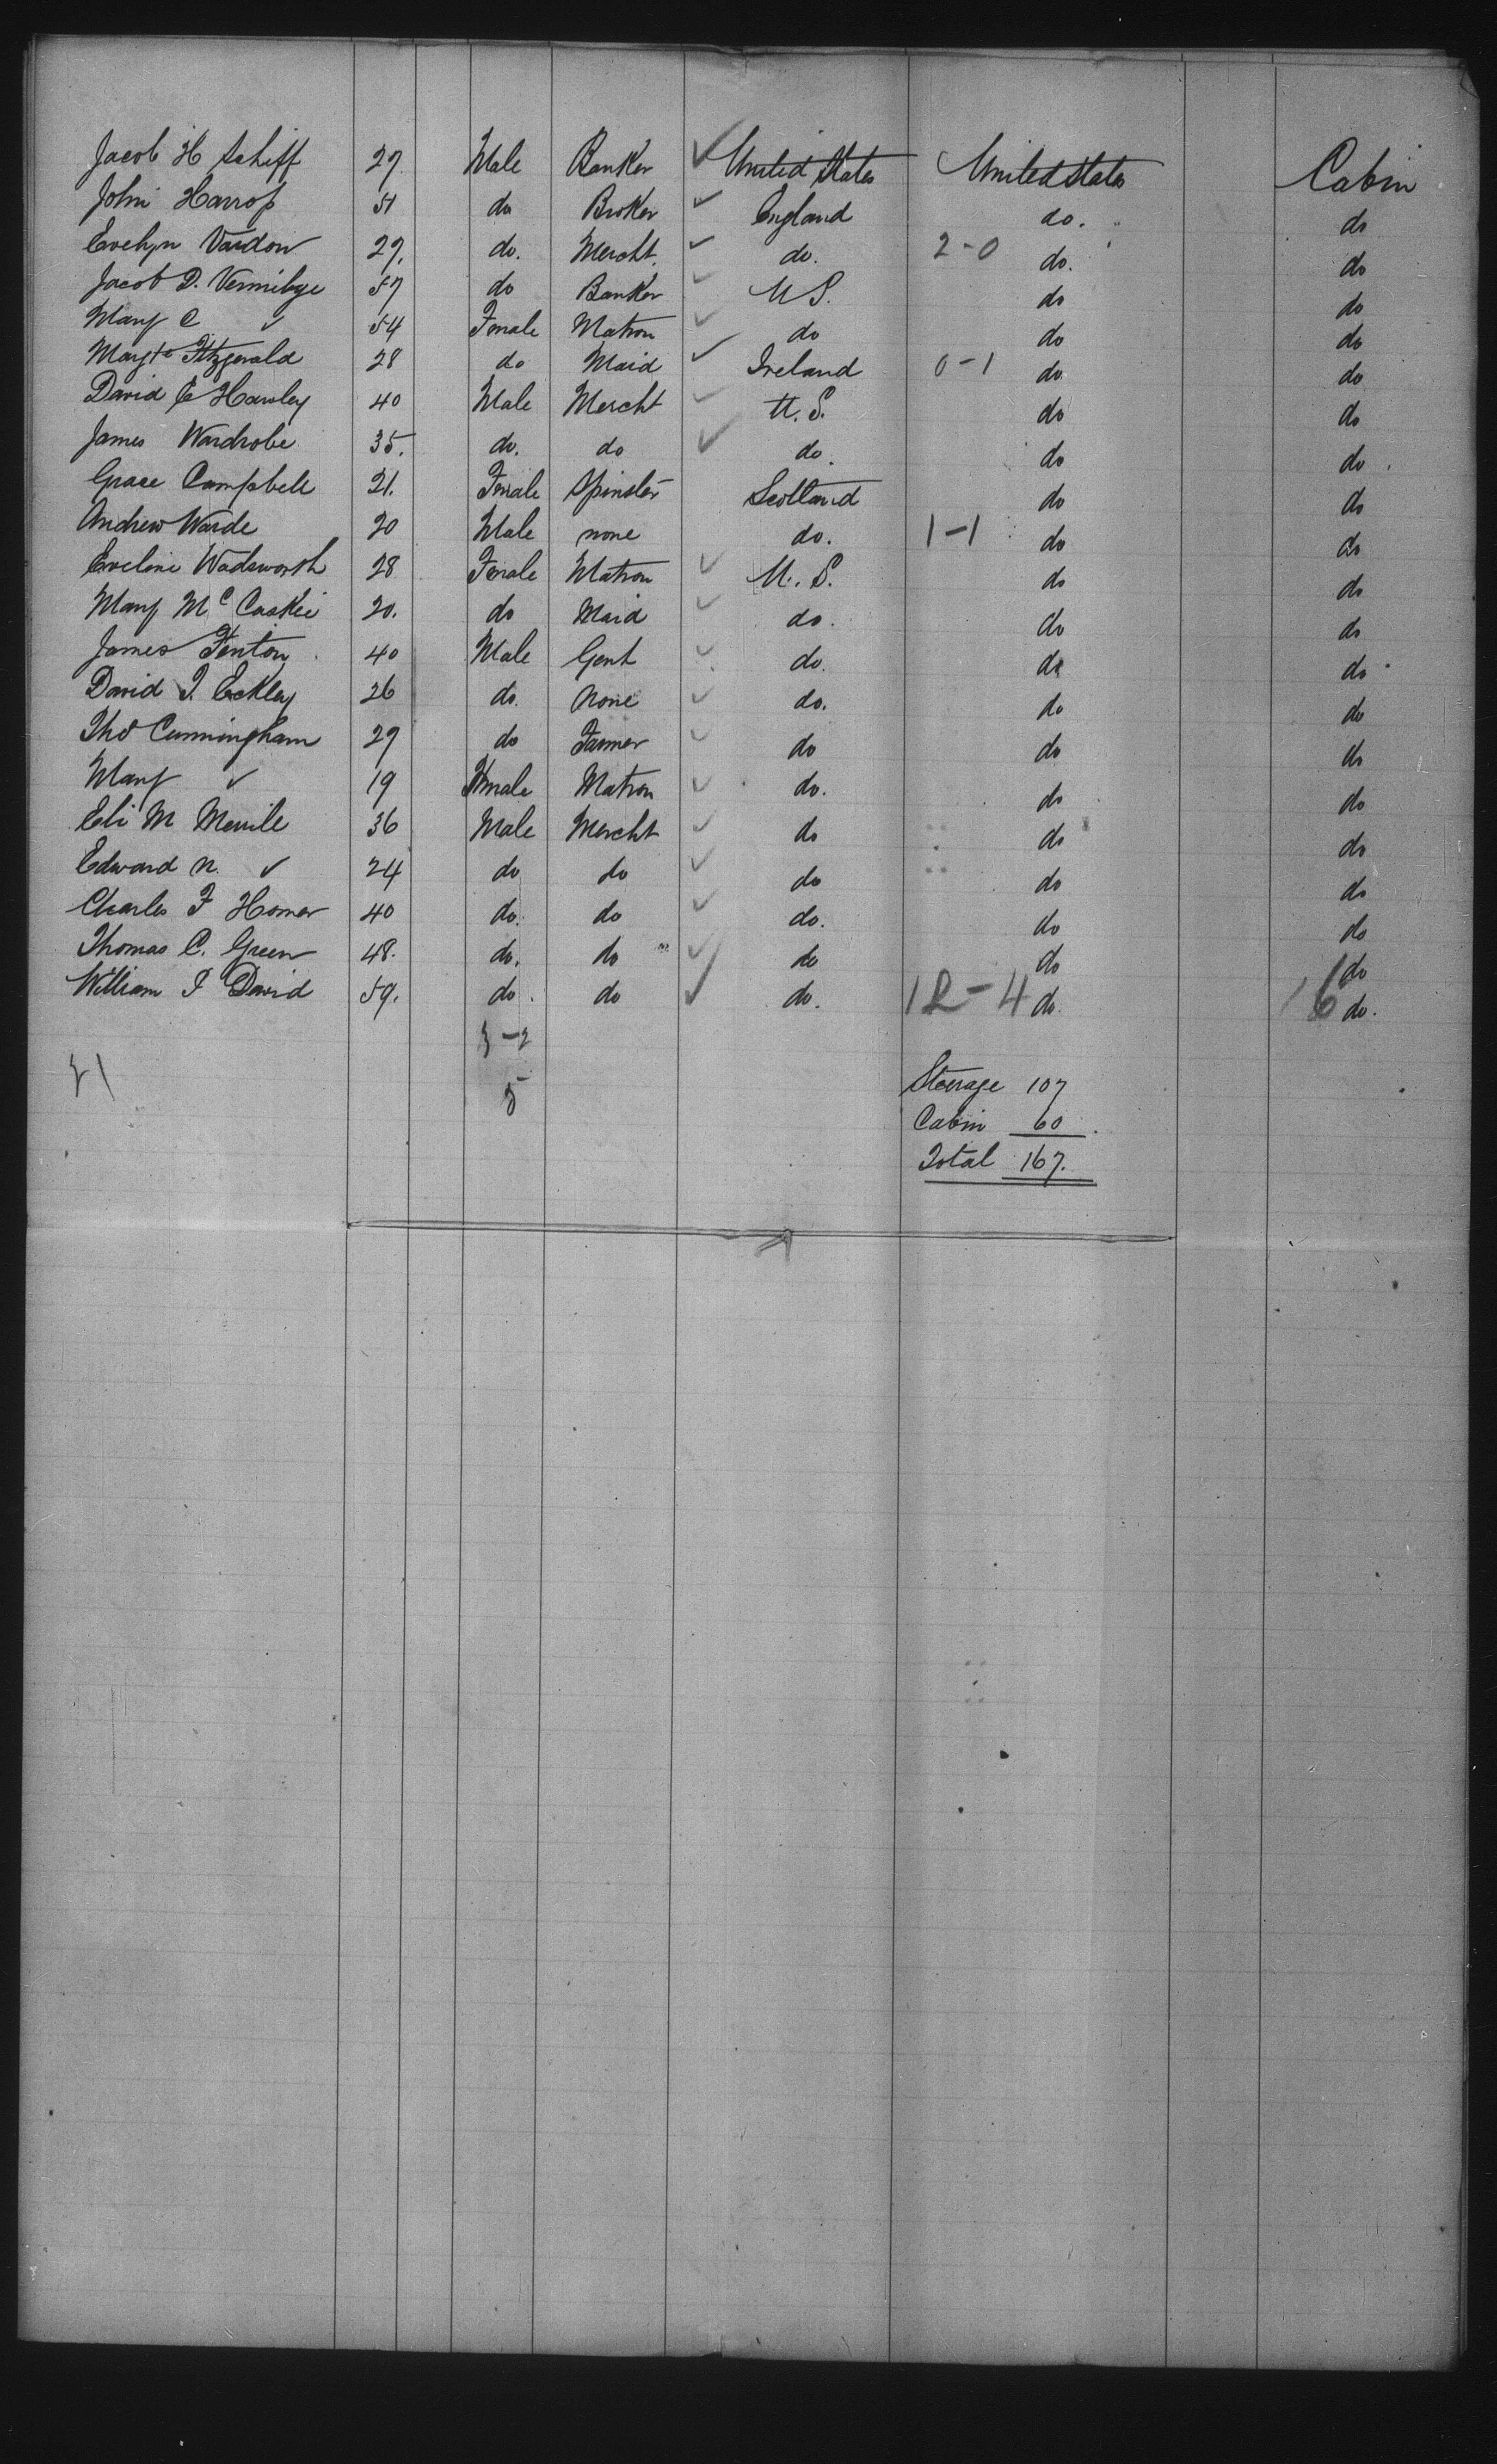 Jacob H Schiff 27 Male Banker ✓ United States United States Cabin
John Harrop 51 do Broker ✓ England do. do
Evelyn Vardon 27. do. Mercht. ✓ do. 2-0 do. do
Jacob D. Vermilye 57 do Banker ✓ U S. do do
Mary C ✓ 54 Female Matron ✓ do do do
Margte Fitzgerald 28 do Maid ✓ Ireland 0-1 do do
David E Hawley 40 Male Mercht ✓ U. S. do do
James Wardrobe 35. do. do ✓ do. do do.
Grace Campbell 21. Female Spinster Scotland do do
Andrew Warde 20 Male none do. 1-1 do do
Eveline Wadsworth 28 Female Matron ✓ U. S. do do
Mary McCaskie 20. do Maid ✓ do. do do
James Fenton 40 Male Gent ✓ do. do do
David J. Eckley 26 do. None ✓ do. do do
Thos Cunningham 29 do Farmer ✓ do do do
Mary ✓ 19 Female Matron ✓ do. do do
Eli M 36 Male Mercht ✓ do do do
Edward N. ✓ 24 do do ✓ do do do
Charles F Homer 40 do. do ✓ do. do do
Thomas C. Green 48. do. do ✓ do do do
William J David 59. do. do ✓ do. 12-4 do. 16 do.
3-2
21 Steerage 107
5
Cabin 60
Total 167.